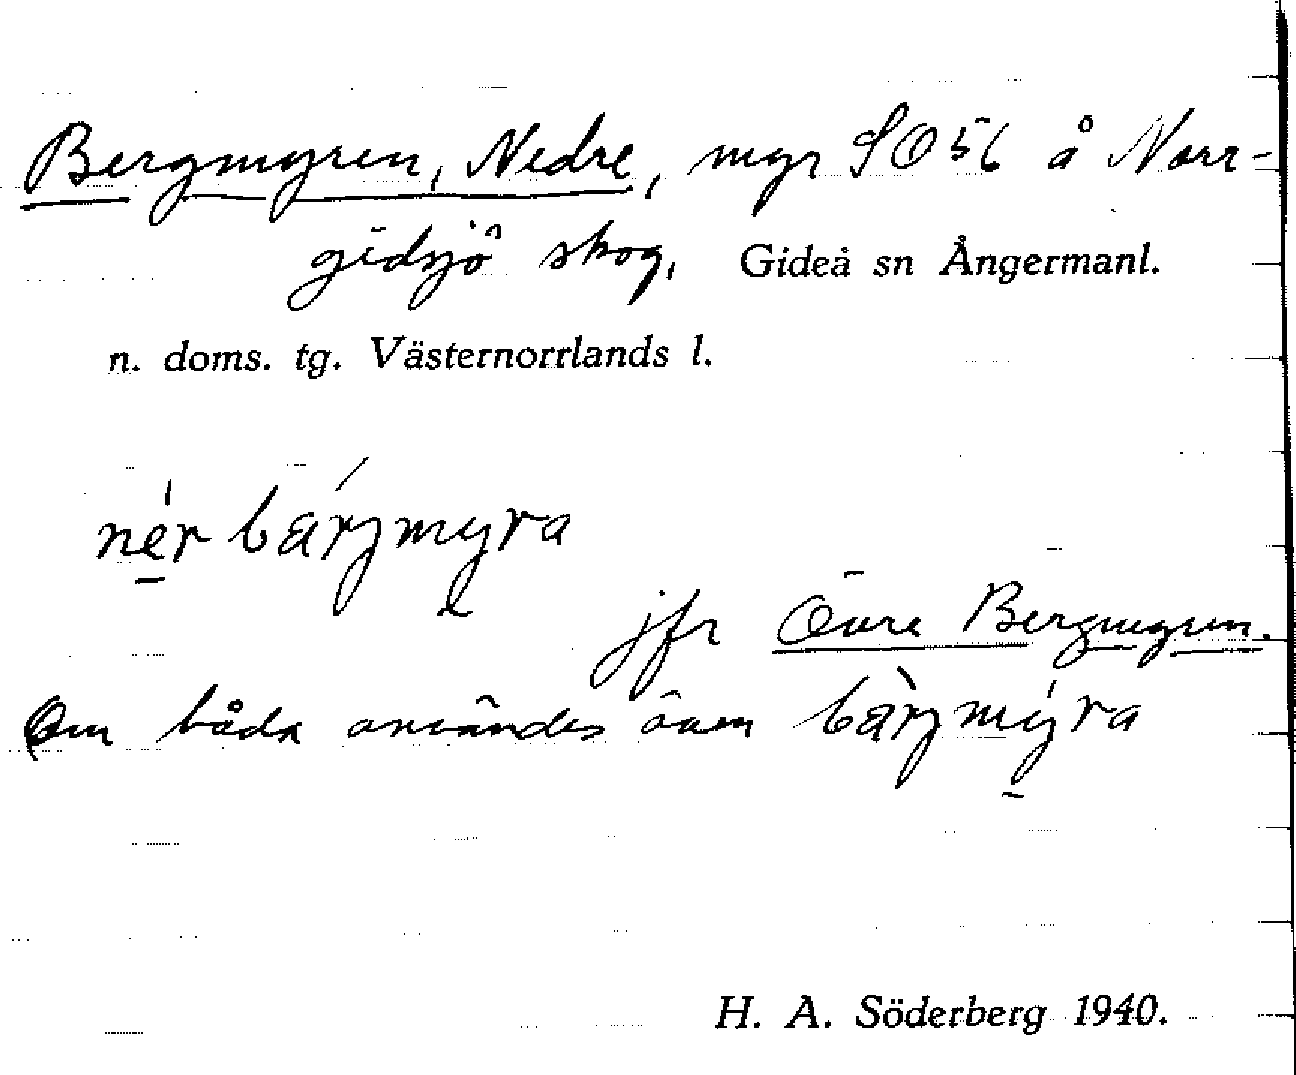 Bergmyren, Nedre, myr SO 56 å Norr-
gidsjö skog, Gideå sn Ångermanl.
n. doms. tg. Västernorrlands l.
nér bárjmyra
jfr Övre Bergmyren.
Om båda användes även bàrjmýra
H. A. Söderberg 1940.